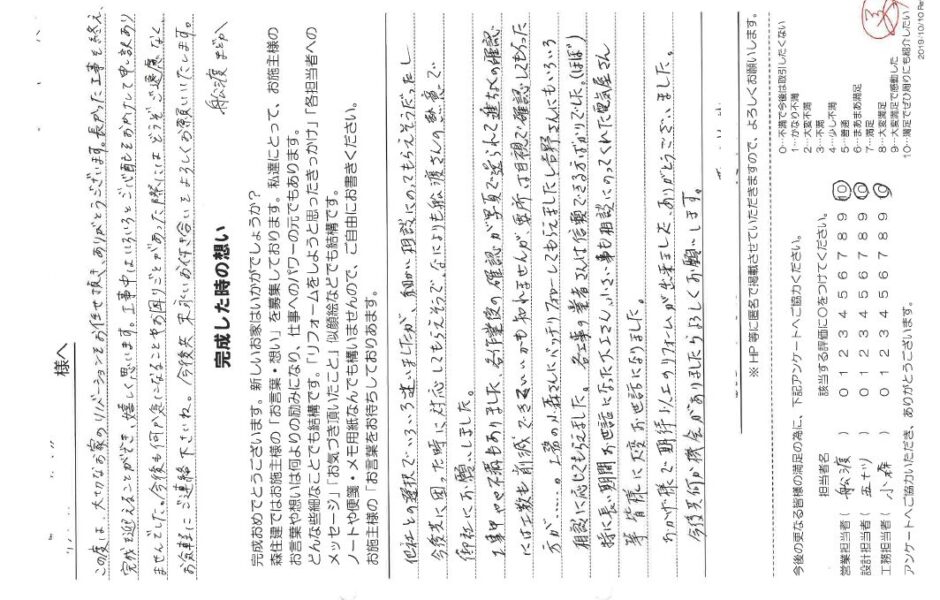 様へ
この度は、大切なお家のリノベーションをお任せ頂き、ありがとうございます。長かった工事も終え、
完成を迎えることができ、嬉しく思います。工事中はいろいろとご心配をおかけして申し訳あり
ませんでした。今後も何か気になることやお困りごとがあった際には、どうぞご遠慮なく
お気軽にご連絡下さいね。今後共 末永いお付き合いをよろしくお願いいたします。
舩渡 まどか
完成した時の想い
完成おめでとうございます。新しいお家はいかがでしょうか?
森住建ではお施主様の「お言葉・想い」を募集しております。私達にとって、お施主様の
お言葉や想いは何よりの励みになり、仕事へのパワーの元でもあります。
どんな些細なことでも結構です。「リフォームをしようと思ったきっかけ」「各担当者への
メッセージ」「お気づき頂いたこと」「似顔絵などでも結構です。
ノートや便箋・メモ用紙なんでも構いませんので、ご自由にお書きください。
お施主様の「お言葉をお待ちしておりおます。
他社との選択でいろいろ迷いましたが、細かい相談にのってもらえそうだったし
今後共に困った時に対応してもらえそうで、なによりも舩渡さんの熱意で
御社にお願いしました。
工事中やや不満もありました。各作業後の確認が写真で送られて進むなどの確認
には工数も削減できていいかも知れませんが、要所は目視で確認してもらった
方が……。工務の小森さんにバッチリフォローしてもらえました。吉野さんにもいろいろ
相談に応じてもらえました。各工事の業者さんは信頼できる方ばかりでした。(ほぼ)
特に長い期間お世話になった大工さん、小さい事も相談にのってくれた電気屋さん
等 皆様に大変お世話になりました。
おかげ様で期待以上のリフォームが出来ました、ありがとうございました。
今後共何か機会がありましたらよろしくお願いします。
※HP 等に匿名で掲載させていただきますので、よろしくお願いします。
今後の更なる皆様の満足の為に、下記アンケートへご協力ください。
担当者名 該当する評価に○をつけてください。
営業担当者( 舩渡 ) 0 1 2 3 4 5 6 7 8 9 10
設計担当者( 五十ツ ) 0 1 2 3 4 5 6 7 8 9 10
工務担当者( 小森 ) 0 1 2 3 4 5 6 7 8 9 10
アンケートへご協力いただき、ありがとうございます。
0…不満で今後は取引したくない
1…かなり不満
2…大変不満
3…不満
4…少し不満
5…普通
6…まあまあ満足
7…満足
8…大変満足
9…大変満足で感動した
10…満足でぜひ周りにも紹介したい
2019/10/10 Re